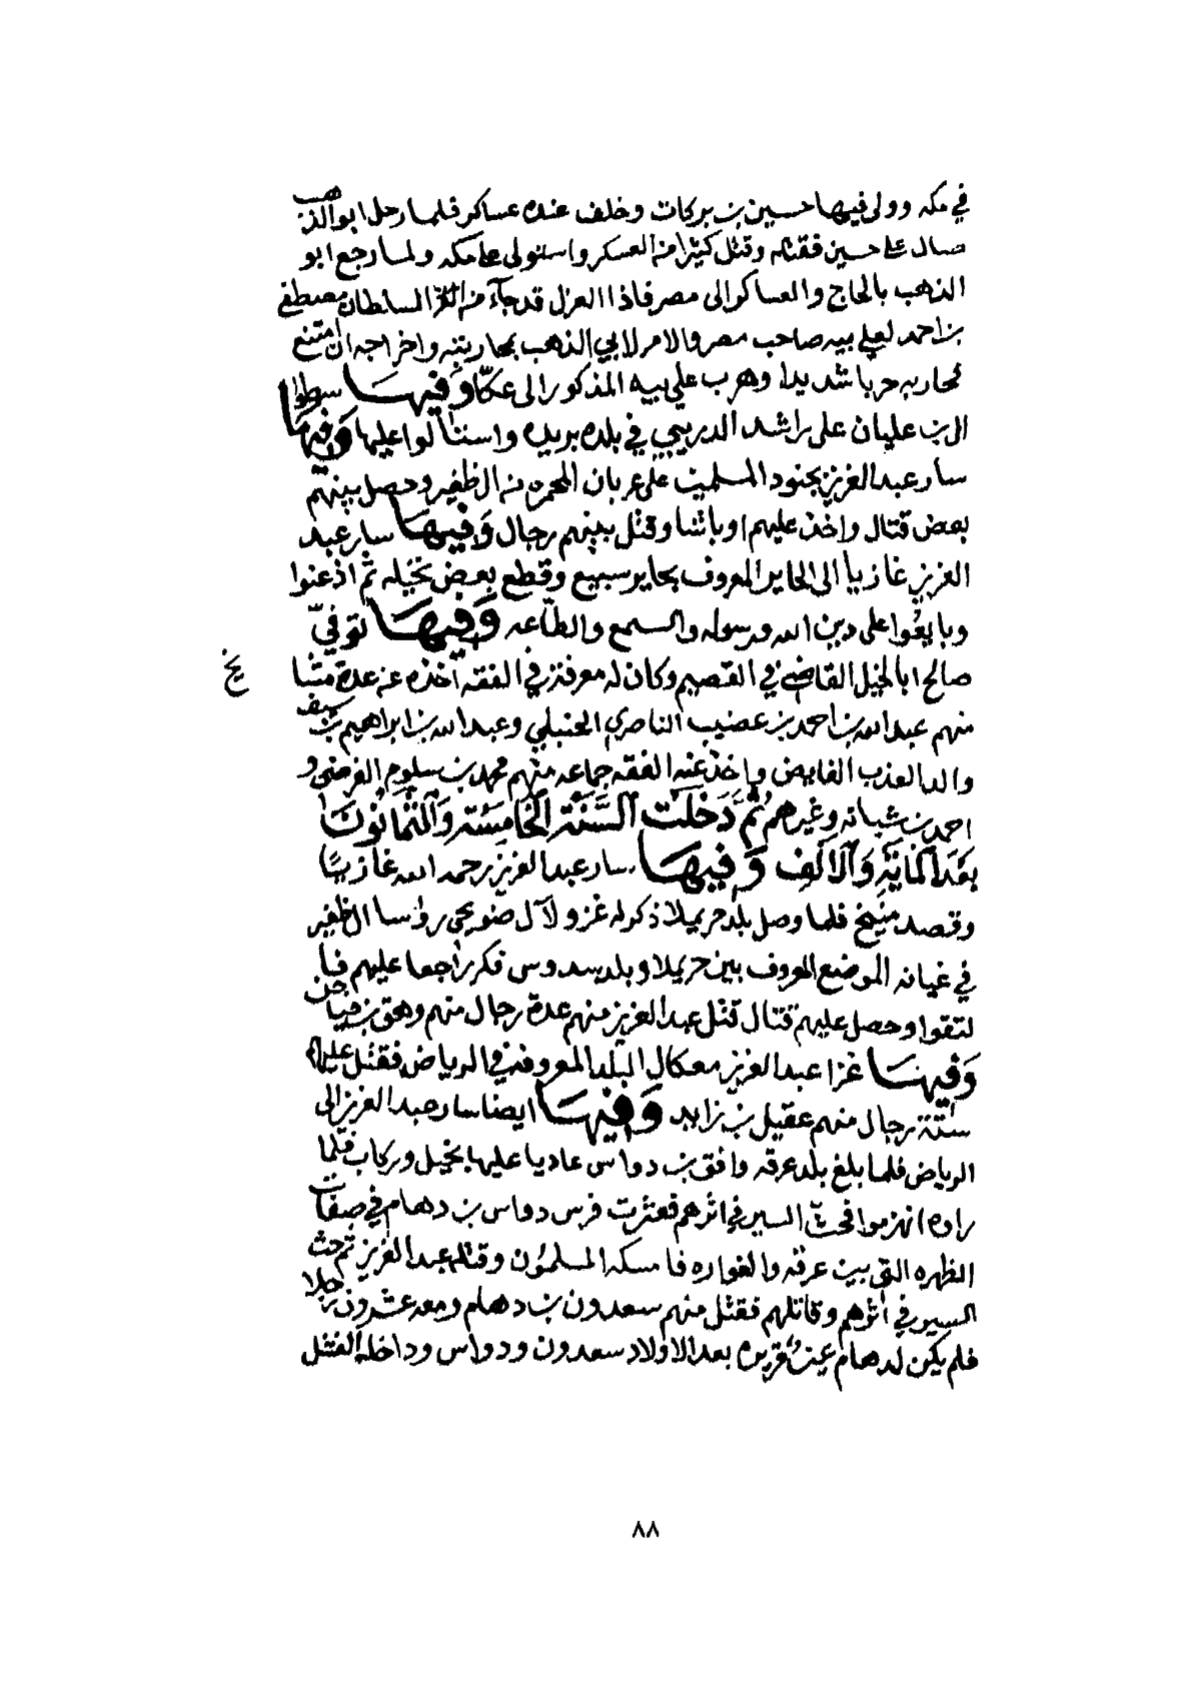 في مكه وولى فيها حسين بن بركات وخلف عنده عساكر فلما رحل ابوالذهب
صال على حسين فقتله وقتل كثيرا من العسكر واستولى على مكه ولما رجع ابو
الذهب بالحاج والعساكر الى مصر فاذا العزل قد جآء من السلطان مصطفى
بن احمد لعلي بيه صاحب مصر والامر لابي الذهب بمحاربته واخراجه ان امتنع
فحاربه حربا شديدا وهرب علي بيه المذكور الى عكّا وَفيهَا سطوا
ال بن عليان على راشد الدريبي في بلده بريده واستالوا عليها وَفيهَا
سار عبدالعزيز بجنود المسلمين على عربان المحمره من ال ظفير وحصل بينهم
بعض قتال واخذ عليهم اوباشا وقتل بينهم رجال وَفيهَا سار عبد
العزيز غازيا الى الحاير المعروف بحاير سبيع وقطع بعض نخيله ثم اذعنوا
وبايعُوا على دين الله ورسوله والسمع والطّاعه وَفيهَا توفيّ
صالح ابا لخيل القاضي في القصيم وكان له معرفة في الفقه آخذه عن عدة مشا
يخ
منهم عبدالله بن احمد بن عضيب الناصري الحنبلي وعبدالله بن ابراهيم بن سيف
والد العذب الفايض واخذ عنه الفقه جماعه منهم محمد بن سلوم الفرضي و
احمد بن شبانه وغيرهم ثُمَّ دَخَلَت السَّنَة الخَامِسَة وَالثمَانُونَ
بَعْدَ المَايَةِ وَالاَلف وَفيهَا سار عبدالعزيز رحمه الله غازيًا
وقصد منيخ فلما وصل بلد حريملا ذكر له غزو لآل ضويحى رواسا ال ظفير
في غيانه الموضع المعروف بين حريملا وبلد سدوس فكر راجعا عليهم فا
لتقوا وحصل عليهم قتال قتل عبدالعزيز منهم عدة رجال منهم وهق بن فياض
وَفيهَا غزا عبدالعزيز معكال البلد المعروفة في الرياض فقتل عليها
ستة رجال منهم عقيل بن زايد وَفيهَا ايضا سار عبدالعزيز الى
الرياض فلما بلغ بلد عرقه وافق بن دواس عاديا عليها بخيل وركاب فلما
راوه انهزموا فحثّ السير في اثرهم فعثرت فرس دواس بن دهام في صفات
الظهره التي بين عرقه والفواره فامسكه المسلمُون وقتله عبدالعزيز ثم حث
السير في اثرهم وقاتلهم فقتل منهم سعدون بن دهام ومعه عشرون رجلا
فلم يكن لدهام عينُ قريره بعد الاولاد سعدون ودواس وداخله الفشل
٨٨